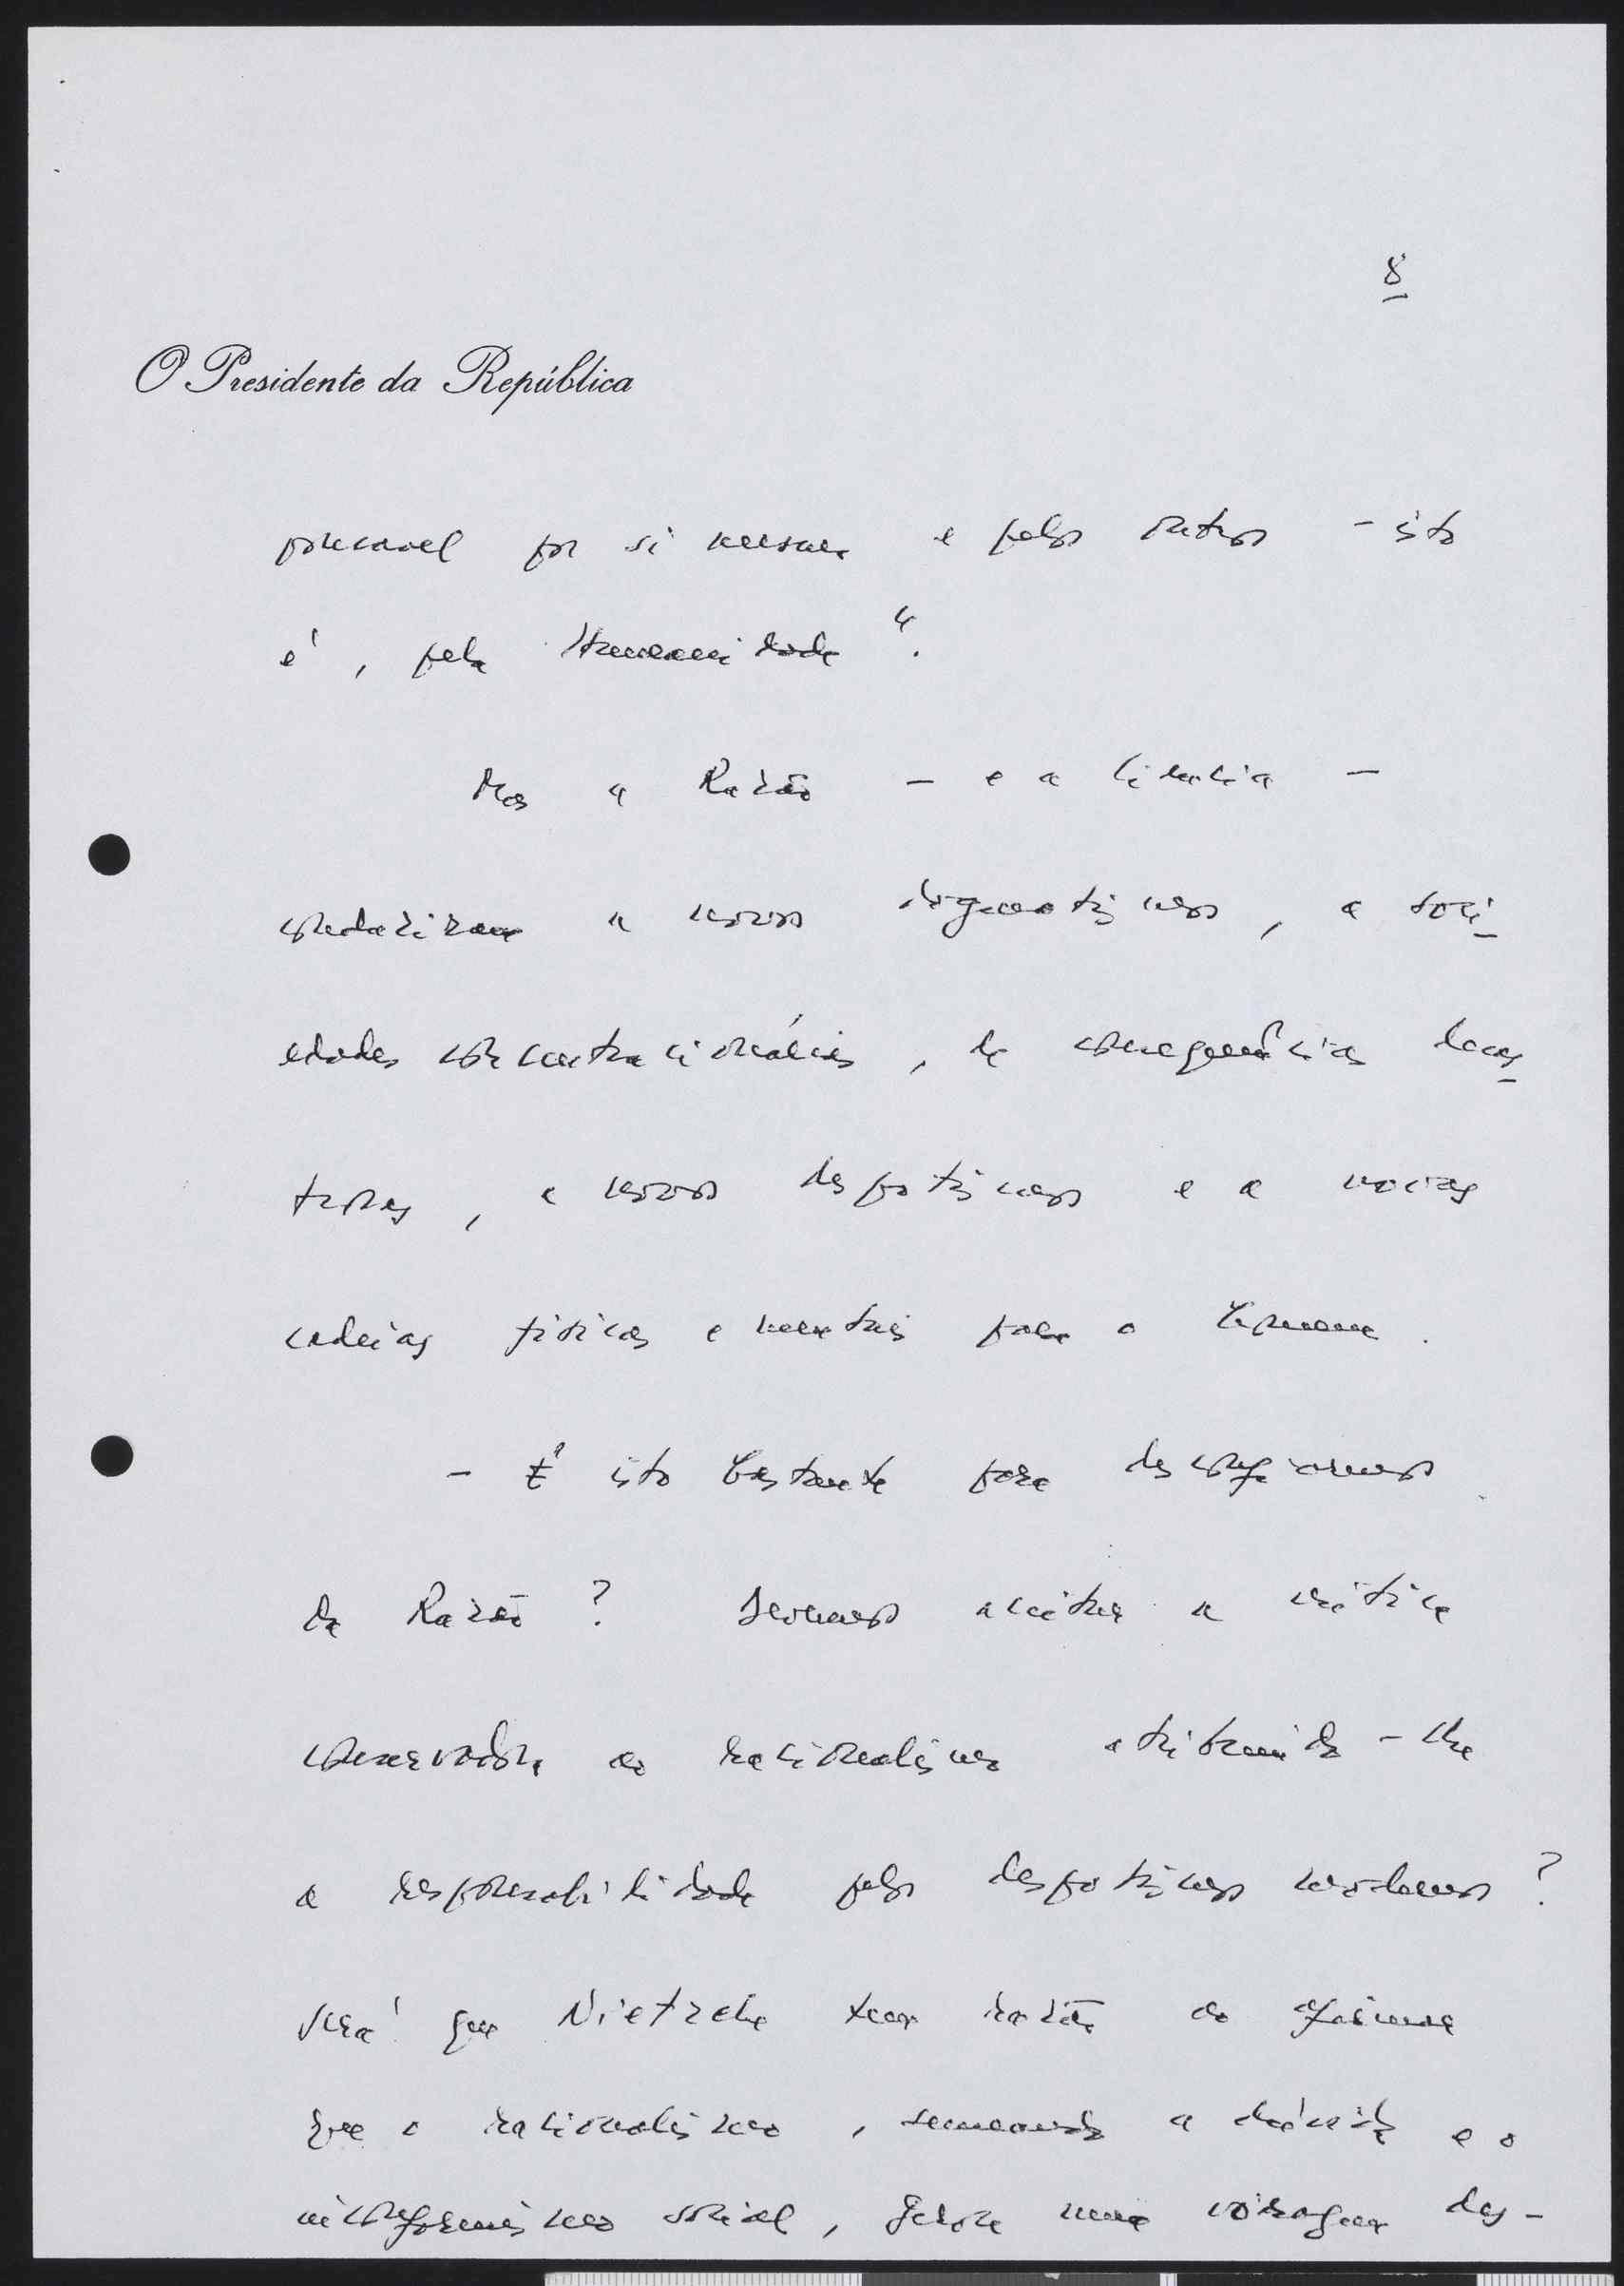 8
O Presidente da República
ponsavel por si mesmo e pelos outros - isto
é, pela Humanidade".
Mas a Razão - e a Ciência -
conduziram a novos dogmatismos, a soci
edades concentracionárias, de consequências desas
trosas, a novos despotismos e a novas
cadeias físicas e mentais para o homem.
- É isto bastante para desconfiarmos
da Razão? Devemos aceitar a crítica
conservadora ao racionalismo atribuindo-lhe
a responsabilidade pelos despotismos modernos?
Será que Nietzche tem razão ao afirmar
que o racionalismo, semeando a dúvida e o
inconformismo social, gerou uma voragem des-